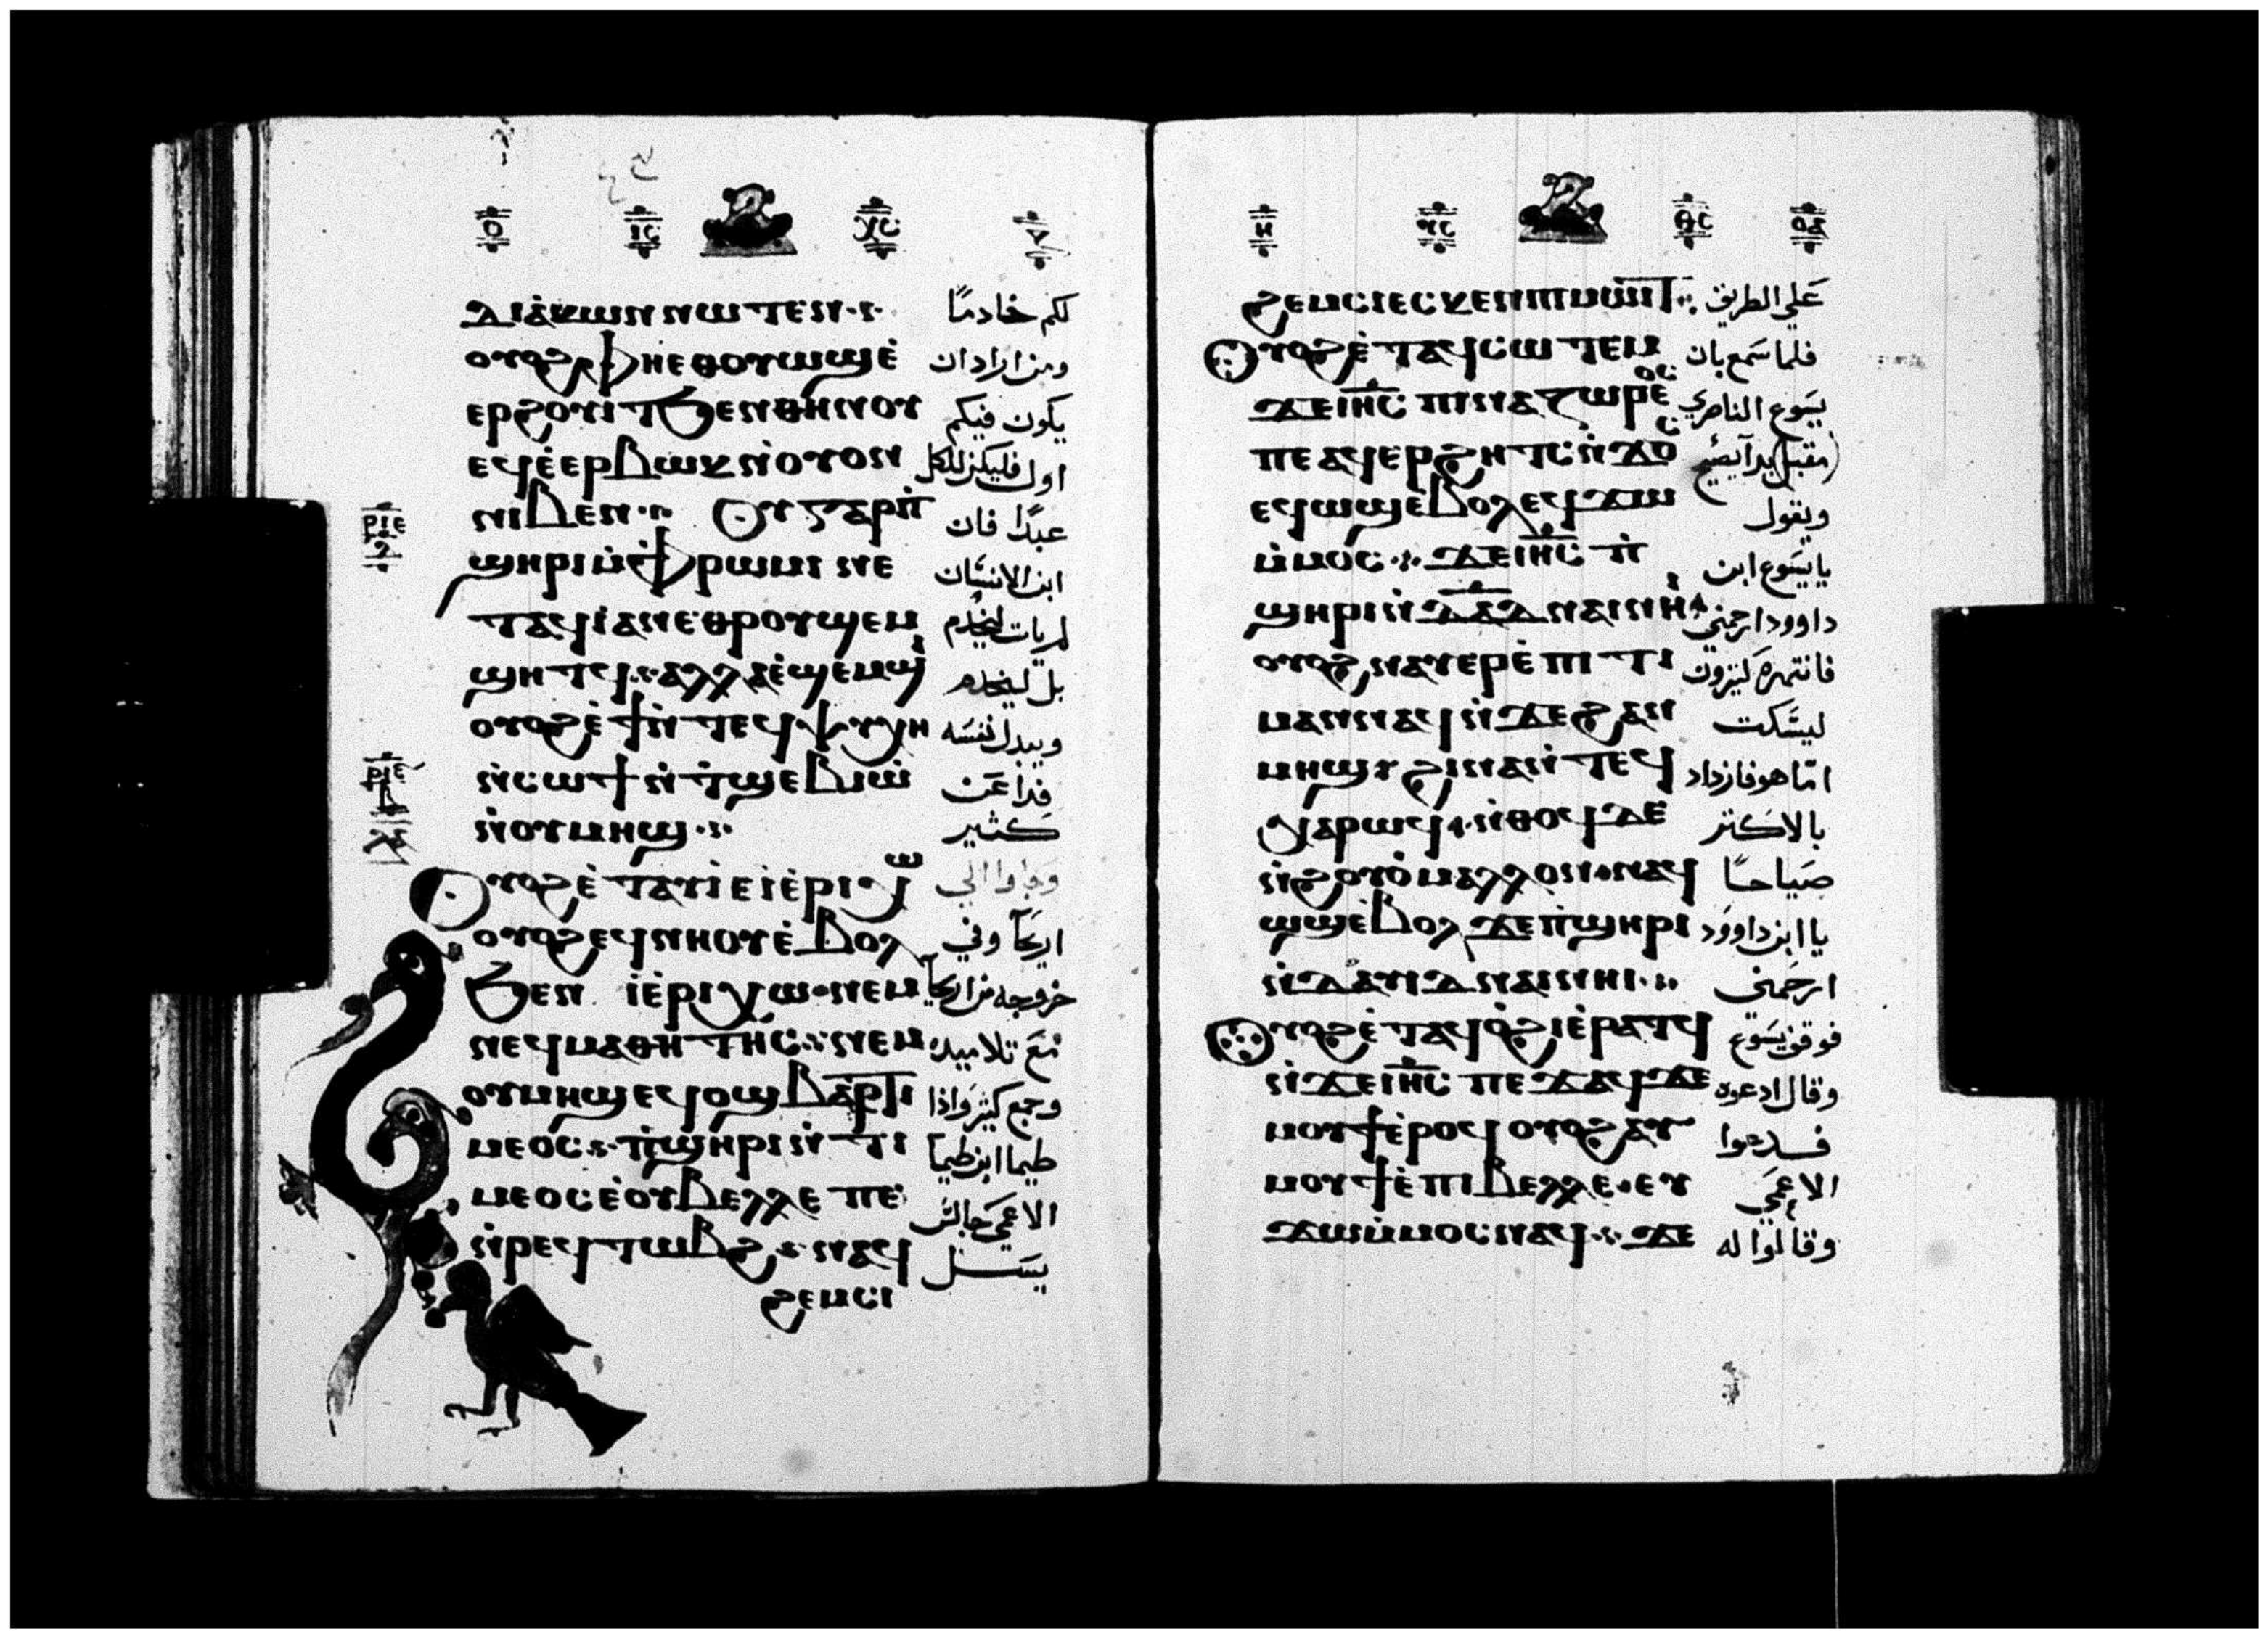 ⲇⲓⲁⲕⲱⲛ ⲛⲱⲧⲉⲛ لكم خادمًا
ⲟⲩⲟϩ ⲫⲏⲉⲑⲟⲩⲱϣⲉ̀ ومن اراد ان
ⲉⲣϩⲟⲩⲓⲧ ϧⲉⲛ ⲑⲏⲛⲟⲩ يكون فيكم
ⲉϥⲉ̀ⲉⲣⲃⲱⲕ ⲛ̀ⲟⲩⲟⲛ اول فليكن للكل
ⲛⲓⲃⲉⲛ ⲟⲩ ⲅⲁⲣ ⲡ̀ عبدًا فان
ϣⲏⲣⲓ ⲙ̀ⲫⲣⲱⲙⲓ ⲛⲉ ابن الانسان
ⲧⲁϥⲓ̀ ⲁⲛ ⲉ̀ⲑⲣⲟⲩϣⲉⲙ لم يات ليخدم
ϣⲏⲧϥ ⲁⲗⲗⲁ ⲉ̀ϣⲉⲙϣⲓ بل ليخدم
ⲟⲩⲟϩ ⲉ̀ϯ ⲛ̀ⲧⲉϥⲯⲩⲭⲏ ويبدل نفسه
ⲛ̀ⲥⲱϯ ⲛ̀ⲧ̀ϣⲉⲃⲓⲱ̀ فدا عن
ⲛ̀ⲟⲩⲙⲏϣ كثير
ⲟⲩⲟϩ ⲉ̀ⲧⲁⲩⲓ̀ ⲉⲓⲉ̀ⲣⲓⲭⲱ وجاوا الي
ⲟⲩⲟϩ ⲉϥⲛⲏⲟⲩ ⲉ̀ⲃⲟⲗ اريحا وفي
ϧⲉⲛ ⲓⲉ̀ⲣⲓⲭⲱ ⲛⲉⲙ خروجه من اريحا
ⲛⲉϥⲙⲁⲑⲏⲧⲏⲥ ⲛⲉⲙ مع تلاميده
ⲟⲩⲙⲏϣ ⲉϥⲟϣ ⲃⲁⲣϯ وجمع كثير واذا
ⲙⲉⲟⲥ ⲡ̀ϣⲏⲣⲓ ⲛ̀ⲧⲓ طيما ابن طيما
ⲙⲉⲟⲥ ⲉ̀ⲟⲩⲃⲉⲗⲗⲉ ⲡⲉ الاعمى جالس
ⲛ̀ⲣⲉϥⲧⲱⲃϩ ⲛⲁϥ يسـل
ϩⲉⲙⲥⲓ
ϩⲉⲙⲥⲓ ⲉⲥⲕⲉⲛ ⲡⲓⲙⲱⲓⲧ على الطريق
ⲟⲩⲟϩ ⲉ̀ⲧⲁϥⲥⲱⲧⲉⲙ فلما سمع بان
ϫⲉ ⲓⲏⲥ ⲡⲓⲛⲁⲍⲱⲣⲉⲟⲥ يسوع الناصري
ⲡⲉ ⲁϥⲉⲣϩⲏⲧⲥ ⲛ̀ϫⲟⲥ مقبل بدا يصيح
ⲉϥⲱϣ ⲉ̀ⲃⲟⲗ ⲉϥϫⲱ ويقول
ⲙ̀ⲙⲟⲥ ϫⲉ ⲓⲏⲥ ⲡ̀ يا يسوع ابن
ϣⲏⲣⲓ ⲛ̀ⲇⲁⲇ ⲛⲁⲓ ⲛⲏⲓ داوود ارحمني
ⲟⲩⲟϩ ⲛⲁⲩⲉⲣⲉ̀ⲡⲓⲧⲓ فانتهره كثيرون
ⲙⲁⲛ ⲛⲁϥ ⲛ̀ϫⲉ ϩⲁⲛ ليسكت
ⲙⲏϣ ϩⲓⲛⲁ ⲛ̀ⲧⲉϥ امّا هو فازداد
ⲭⲁⲣⲱϥ ⲛ̀ⲑⲟϥ ⲇⲉ بالاكتر
ⲛ̀ϩⲟⲩⲟ̀ ⲙⲁⲗⲗⲟⲛ ⲛⲁϥ صياحًا
ⲱϣ ⲉ̀ⲃⲟⲗ ϫⲉ ⲡ̀ϣⲏⲣⲓ يا ابن داوود
ⲛ̀ⲇⲁⲩⲓⲇ ⲛⲁⲓ ⲛⲏⲓ ارحمني
ⲟⲩⲟϩ ⲉ̀ⲧⲁϥⲟ̀ϩⲓ ⲉ̀ⲣⲁⲧϥ فوقف يسوع
ⲛ̀ϫⲉ ⲓⲏⲥ ⲡⲉϫⲁϥ ϫⲉ وقال ادعوه
ⲙⲟⲩϯ ⲉ̀ⲣⲟϥ ⲟⲩⲟϩ ⲁⲩ فـدعوا
ⲙⲟⲩϯ ⲉ̀ⲡⲓⲃⲉⲗⲗⲉ ⲉⲩ الاعمى
ϫⲱ ⲙ̀ⲙⲟⲥ ⲛⲁϥ ϫⲉ وقالوا له